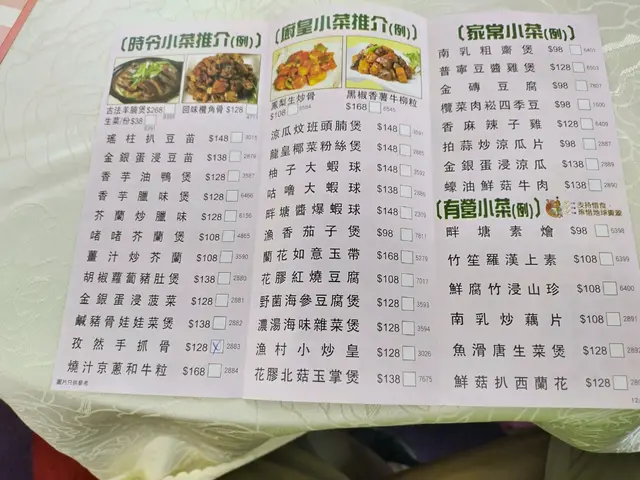 〔時令小菜推介(例)〕
古法羊腩煲$268
生菜/份$38
回味欖角骨 $128
瑤柱扒豆苗 $148
金銀蛋浸豆苗 $138
香芋油鴨煲 $128
香芋臘味煲 $128 6466
芥蘭炒臘味 $128
啫啫芥蘭煲 $108 4865
薑汁炒芥蘭 $108 3590
胡椒蘿蔔豬肚煲 $138 2880
金銀蛋浸菠菜 $128 2881
鹹豬骨娃娃菜煲 $138 2882
孜然手抓骨 $128 2883
燒汁京蔥和牛粒 $168 2884
圖片只供參考
〔府皇小菜推介(例)〕
鳳梨生炒骨
$108
黑椒香薯牛柳粒
$168
涼瓜炆班頭腩煲 $148
龍皇椰菜粉絲煲 $148
柚子大蝦球 $148
咕嚕大蝦球 $148
畔塘醬爆蝦球 $148
漁香茄子煲 $98 7811
蘭花如意玉帶 $168 5079
花膠紅燒豆腐 $108 7017
野菌海參豆腐煲 $128 3593
濃湯海味雜菜煲 $128 3594
漁村小炒皇 $128 3026
花膠北菇玉掌煲 $138 7675
〔家常小菜(例)〕
南乳粗齋煲 $98
普寧豆醬雞煲 $128
金磚豆腐 $98
欖菜肉崧四季豆 $98
香麻辣子雞 $128 6409
拍蒜炒涼瓜片 $98 2887
金銀蛋浸涼瓜 $138 2889
蠔油鮮菇牛肉 $138 2890
〔有營小菜(例)〕
畔塘素燴 $98 5398
竹笙羅漢上素 $108 6399
鮮腐竹浸山珍 $108 6400
南乳炒藕片 $108 2891
魚滑唐生菜煲 $128
鮮菇扒西蘭花 $128